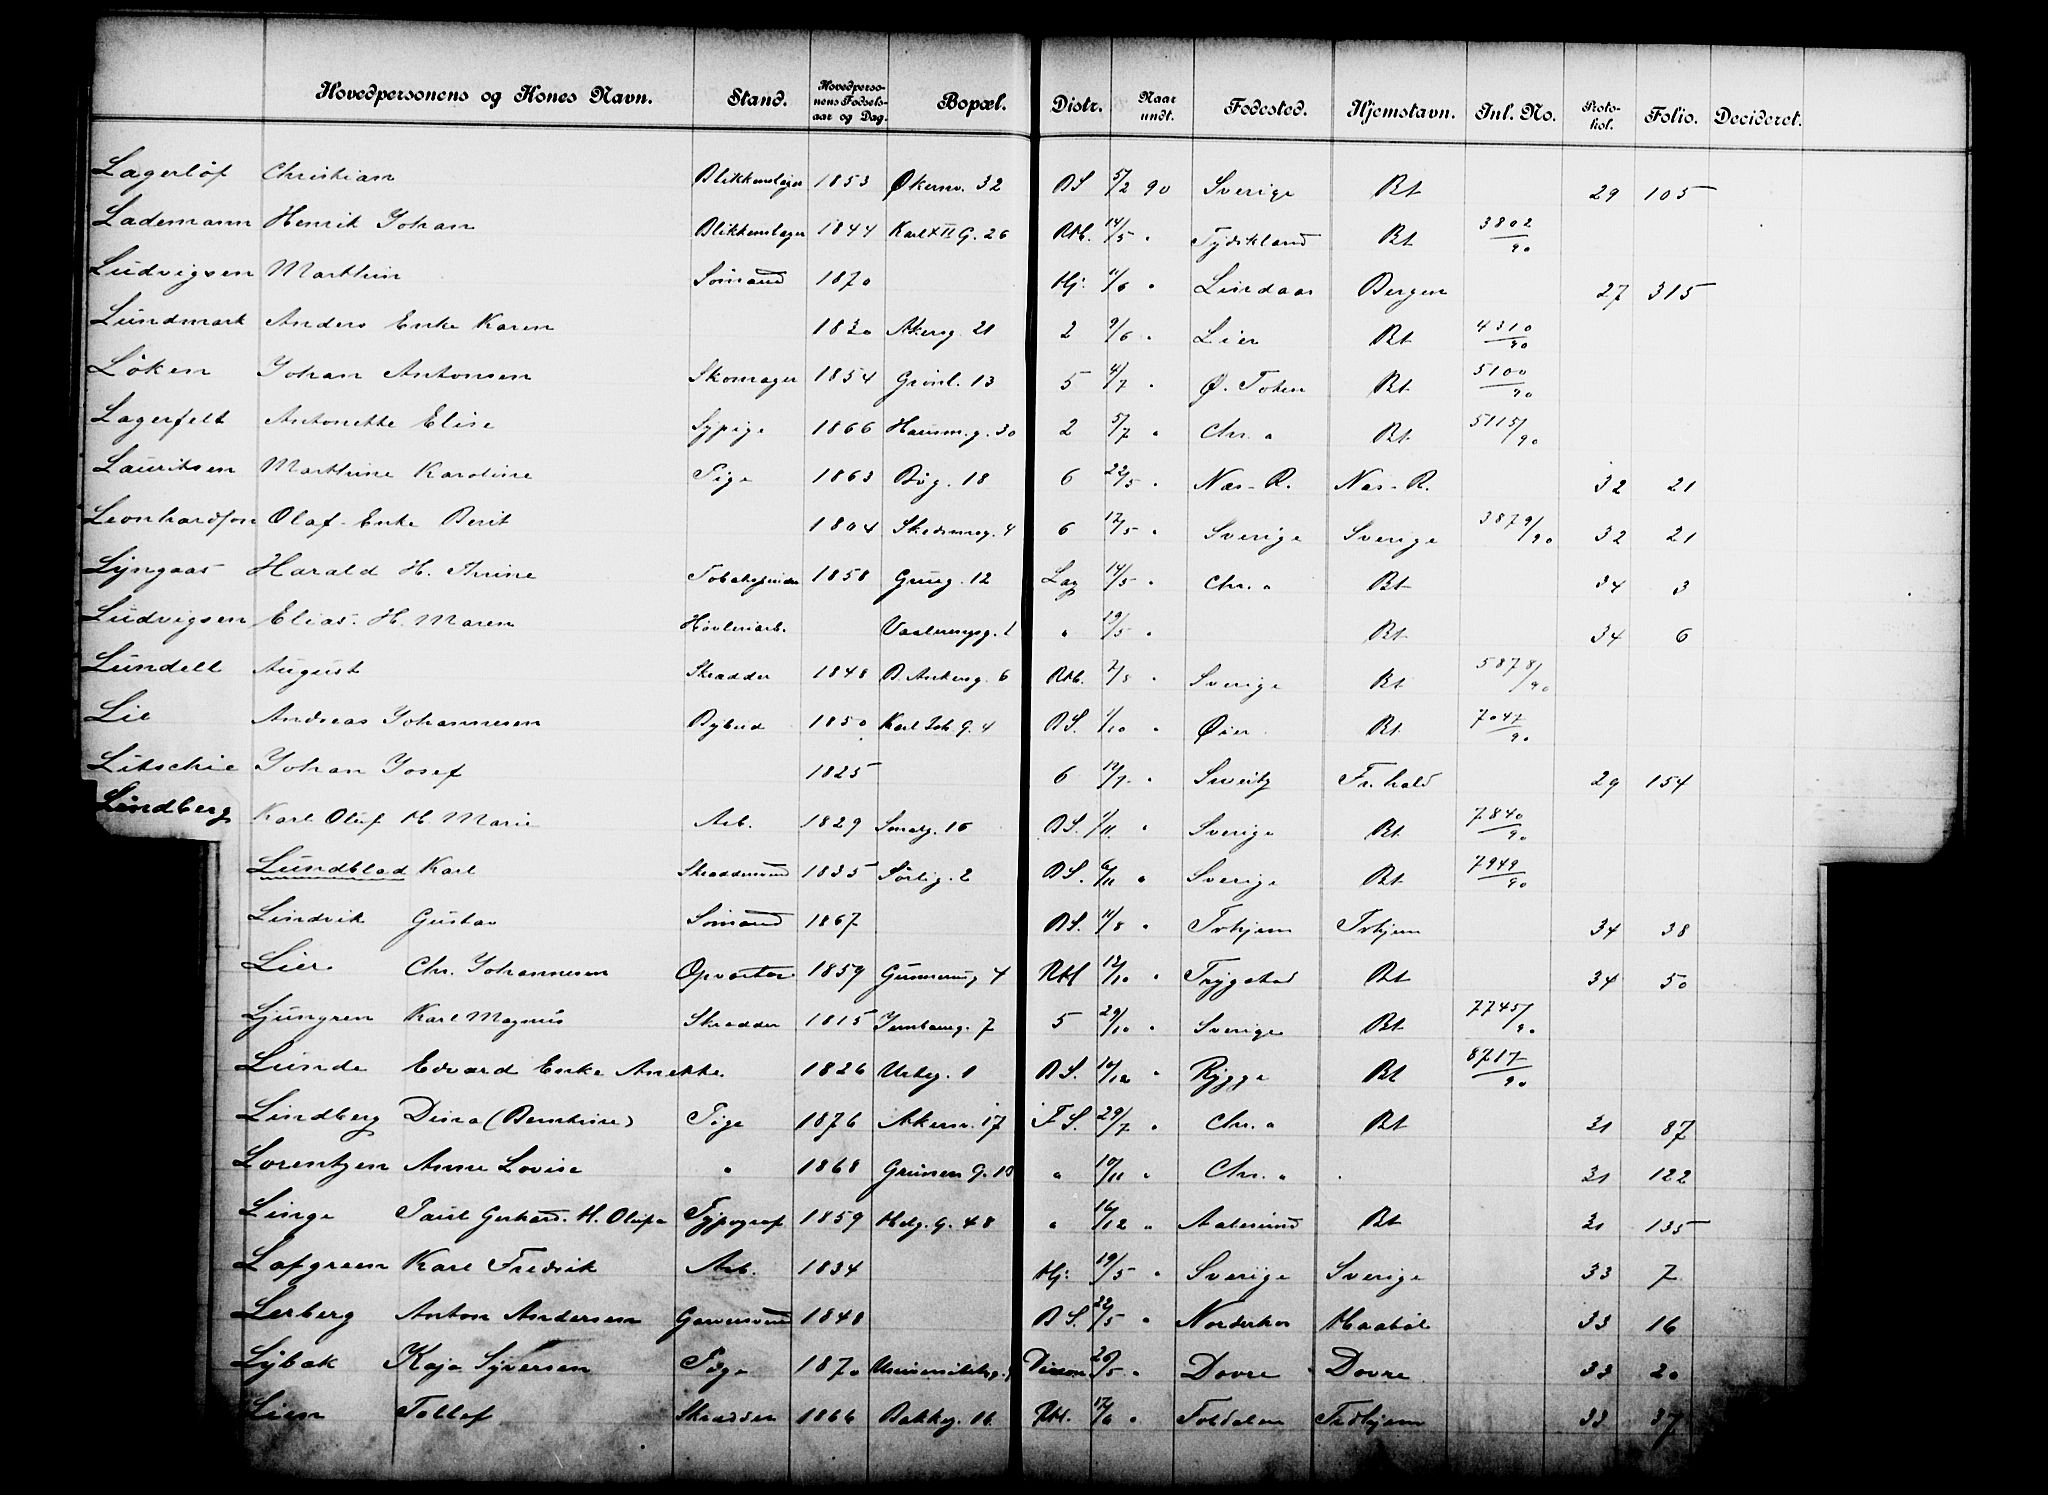 Hovedpersonens og Kones Navn. Stand. Hovedperso-nens Fødsels-aar og Dag. Bopæl. Distr. Naar undt. Fødested. Hjemstavn. Inl. No. Proto-kol. Folio. Decideret.
Lagerlöf Christian Blikkenslager 1853 Økernv. 32 BS 5/2 90 Sverige Bt 29 105
Lademann Henrik Johan Blikkenslager 1844 Karl XII G. 26 Rkl. 14/5 " Tydskland Bt 3802/90
Ludvigsen Marthin Sömand 1870 Hj. 11/6 " Lindaas Bergen 27 315
Lundmark Anders Enke Karen 1820 Akersg. 21 2 9/6 " Lier Bt 4310/90
Löken Johan Antonsen Skomager 1854 Grönl. 13 5 4/7 " Ø. Toten Bt 5100/90
Lagerfelt Antonette Elise Sypige 1866 Hausm.g. 30 2 5/7 " Chr.a Bt 5115/90
Lauritsen Marthine Karoline Pige 1863 Bög. 18 6 22/5 " Næs. R. Næs. R. 32 21
Leonhardson Olaf Enke Berit 1804 Skedsmog. 4 6 17/5 " Sverige Sverige 3879/90 32 21
Lyngaas Harald H. Thrine Tobakspinder 1858 Grueg. 12 Lag 14/5 " Chr.a Bt 34 3
Ludvigsen Elias. H. Maren Høvleriarb. Vaalerengg. 1 " 19/5 " Bt 34 6
Lundell August Skrædder 1848 B. Ankersg. 6 Rkl. 2/8 " Sverige Bt 5878/90
Lie Andreas Johannesen Bybud 1850 Karl Joh. G. 4 BS. 1/10 " Øier Bt 7047/90
Litschie Johan Josef 1825 6 12/7 " Sweitz Fr.hald 29 154
Lindberg Karl Oluf H. Marie Arb. 1829 Smalg. 16 BS. 1/11 " Sverige Bt 7840/90
Lundblad Karl Skræddersvend 1835 Sörlig. 2 BS. 6/11 " Sverige Bt 7949/90
Lindvik Gustav Sömand 1867 BS. 11/8 " Trhjem Trhjem 34 38
Lier Chr. Johannesen Opvarter 1859 Gunnerusg 4 Rkl 13/10 " Trygstad Bt 34 50
Ljungren Karl Magnus Skrædder 1815 Jernbaneg. 7 5 29/10 " Sverige Bt 7745/90
Lunde Edvard Enke Anette. 1826 Urteg. 1 BS. 10/12 " Rygge Bt 8717/90
Lindberg Dina (Bernhine) Pige 1876 Akersv. 17 F.S. 29/7 " Chr.a Bt 31 87
Lorentzen Anne Lovise " 1868 Grüners g. 10 " 10/11 " Chr.a 31 122
Linge Paul Gerhard. H. Olufa Typograf 1859 Helg. G. 48 " 16/12 " Aalesund Bt 31 135
Lofgreen Karl Fredrik Arb. 1834 Hj. 19/5 " Sverige Sverige 33 7
Lerberg Anton Andersen Garversvend 1848 BS. 22/5 " Norderhov Haaböl 33 16
Lybæk Kaja Syversen Pige 1870 Universitetsg. 26/5 " Dovre Dovre 33 20
Lien Tollef Skrædder 1866 Bakkeg. 16 Rkl. 17/6 " Foldalen Trdhjem 33 37